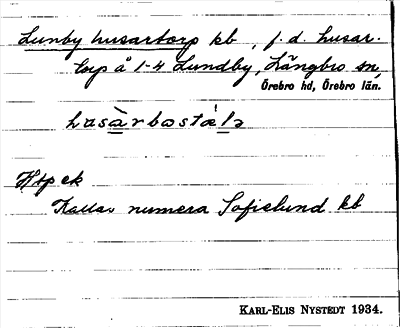 Lunby husartorp kb, f.d. husar-
torp å 1-4 Lundby, Längbro sn,
Örebro hd, Örebro län.
Htp ek
Kallas numera Sofielund kb
KARL-ELIS NYSTEDT 1934.